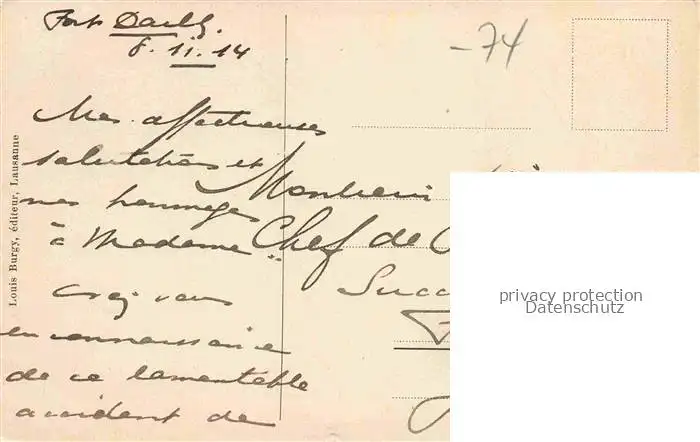 Fort Dailly.
8.11.14
-74
Mes affectueuses
salutations et
mes hommages
à Madame.
Monsieur
Chef de
Succ
en connaissance
de ce lamentable
accident de
Louis Burgy, éditeur, Lausanne
privacy protection
Datenschutz